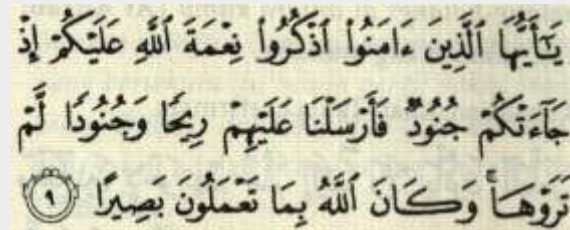 يَٰٓأَيُّهَا ٱلَّذِينَ ءَامَنُوا۟ ٱذْكُرُوا۟ نِعْمَةَ ٱللَّهِ عَلَيْكُمْ إِذْ
جَآءَتْكُمْ جُنُودٌ فَأَرْسَلْنَا عَلَيْهِمْ رِيحًا وَجُنُودًا لَّمْ
تَرَوْهَا ۚ وَكَانَ ٱللَّهُ بِمَا تَعْمَلُونَ بَصِيرًا ٩